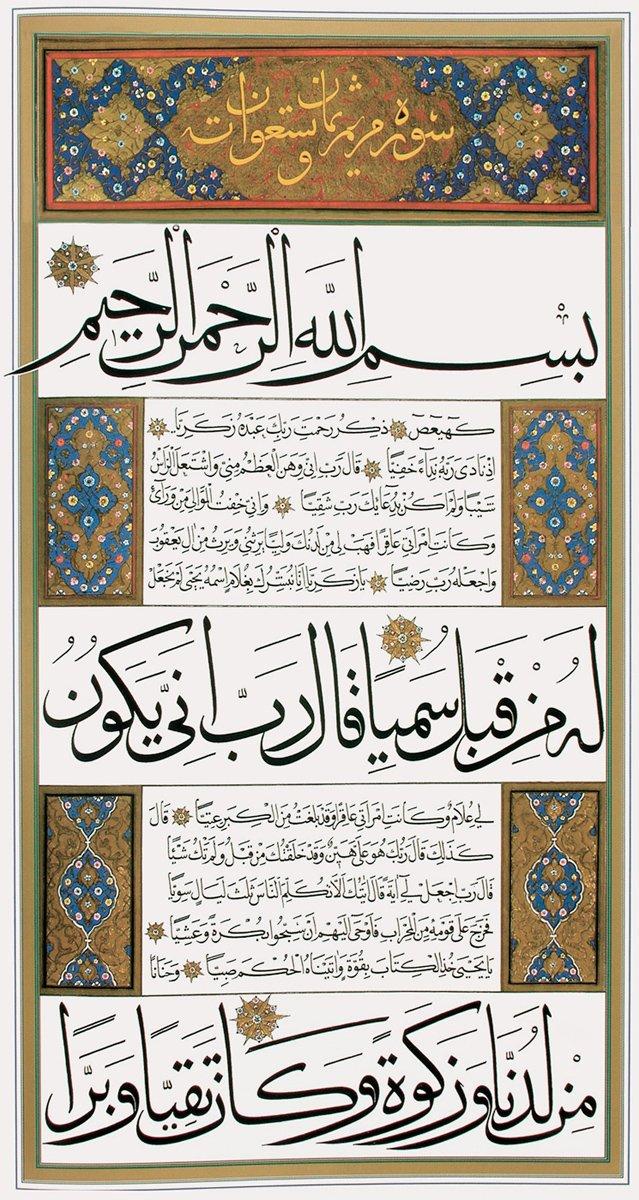 سورة مريم ثمان وتسعون
بِسْمِ اللَّهِ الرَّحْمٰنِ الرَّحِيمِ
كهيعص ذِكْرُ رَحْمَتِ رَبِّكَ عَبْدَهُ زَكَرِيَّا
اِذْ نَادَى رَبَّهُ نِدَاءً خَفِيًّا قَالَ رَبِّ اِنِّى وَهَنَ الْعَظْمُ مِنِّى وَاشْتَعَلَ الرَّأْسُ
شَيْبًا وَلَمْ اَكُنْ بِدُعَائِكَ رَبِّ شَقِيًّا وَاِنِّى خِفْتُ الْمَوَالِىَ مِنْ وَرَائِى
وَكَانَتِ امْرَأَتِى عَاقِرًا فَهَبْ لِى مِنْ لَدُنْكَ وَلِيًّا يَرِثُنِى وَيَرِثُ مِنْ اٰلِ يَعْقُوبَ
وَاجْعَلْهُ رَبِّ رَضِيًّا يَا زَكَرِيَّا اِنَّا نُبَشِّرُكَ بِغُلَامٍ اسْمُهُ يَحْيٰى لَمْ نَجْعَلْ
لَهُ مِنْ قَبْلُ سَمِيًّا قَالَ رَبِّ اَنّٰى يَكُونُ
لِى غُلَامٌ وَكَانَتِ امْرَأَتِى عَاقِرًا وَقَدْ بَلَغْتُ مِنَ الْكِبَرِ عِتِيًّا قَالَ
كَذٰلِكَ قَالَ رَبُّكَ هُوَ عَلَىَّ هَيِّنٌ وَقَدْ خَلَقْتُكَ مِنْ قَبْلُ وَلَمْ تَكُ شَيْئًا
قَالَ رَبِّ اجْعَلْ لِى اٰيَةً قَالَ اٰيَتُكَ اَلَّا تُكَلِّمَ النَّاسَ ثَلٰثَ لَيَالٍ سَوِيًّا
فَخَرَجَ عَلٰى قَوْمِهِ مِنَ الْمِحْرَابِ فَاَوْحٰى اِلَيْهِمْ اَنْ سَبِّحُوا بُكْرَةً وَعَشِيًّا
يَا يَحْيٰى خُذِ الْكِتَابَ بِقُوَّةٍ وَاٰتَيْنَاهُ الْحُكْمَ صَبِيًّا وَحَنَانًا
مِنْ لَدُنَّا وَزَكٰوةً وَكَانَ تَقِيًّا وَبَرًّا